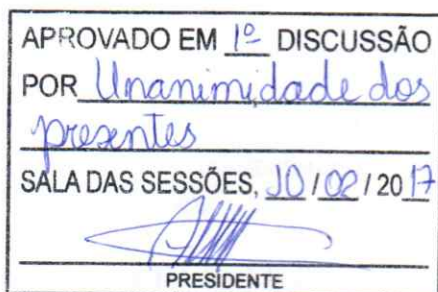 APROVADO EM 1º DISCUSSÃO
POR Unanimidade dos
presentes
SALA DAS SESSÕES, 10 / 02 / 2017
PRESIDENTE